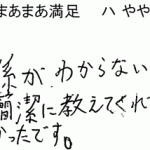 まあまあ満足 ハ やや
係が わからない
簡潔に教えてくれ
かったです。